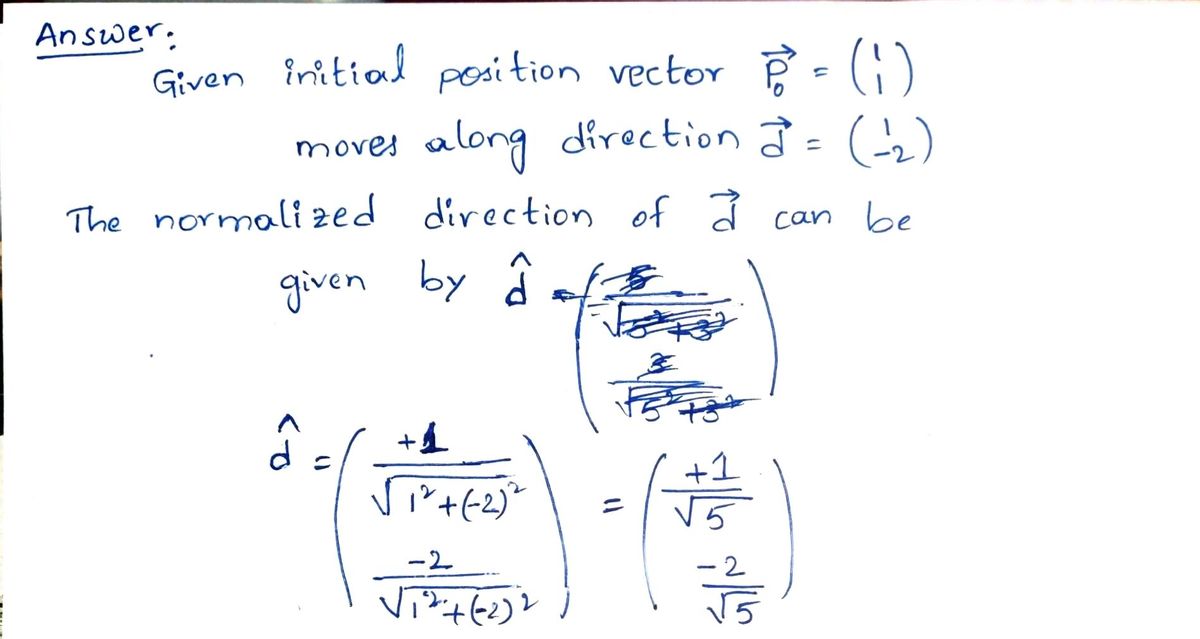 Answer:
Given initial position vector P₀⃗ = (1 1)
moves along direction d⃗ = (1 -2)
The normalized direction of d⃗ can be
given by d̂ =
d̂ = ( +1 / √(1² + (-2)²) , -2 / √(1² + (-2)²) ) = ( +1 / √5 , -2 / √5 )